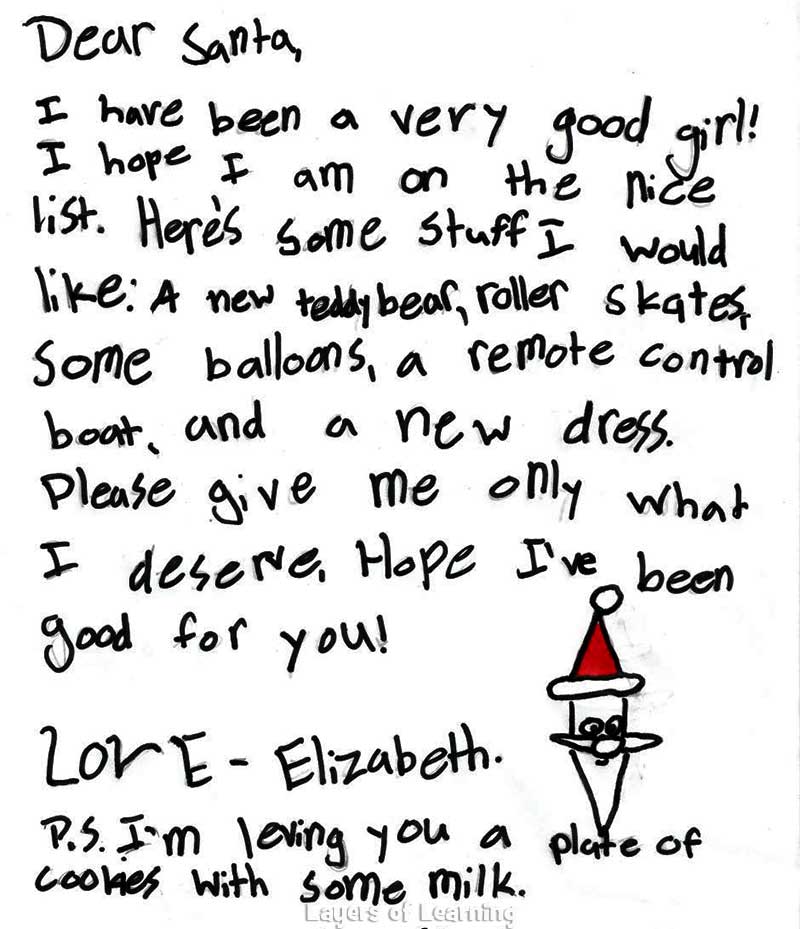 Dear Santa,
I have been a very good girl!
I hope I am on the nice
list. Here's some stuff I would
like: A new teddy bear, roller skates,
some balloons, a remote control
boat, and a new dress.
Please give me only what
I deserve. Hope I've been
good for you!
Love - Elizabeth.
P.S. I'm leving you a plate of
cookies with some milk.
Layers of Learning